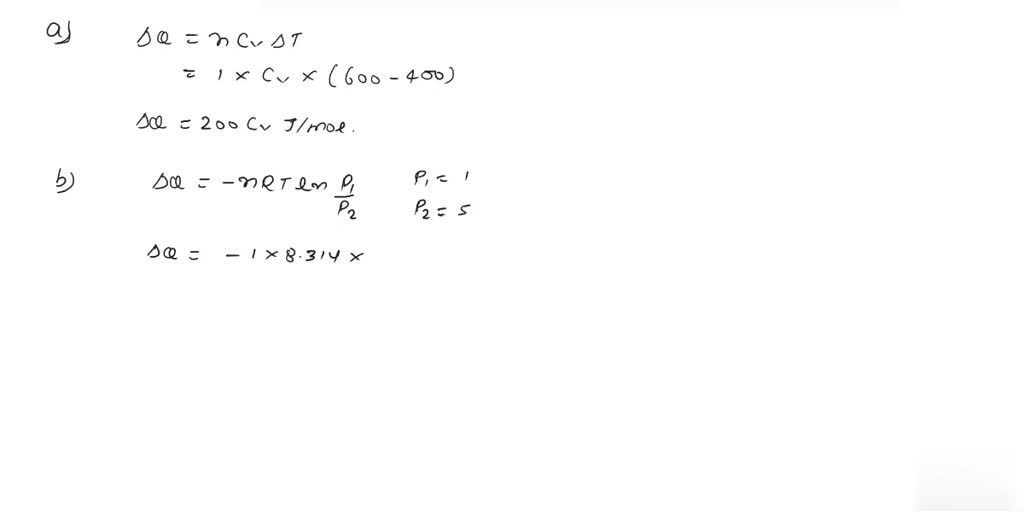 a) ΔQ = n Cv ΔT
= 1 × Cv × (600 - 400)
ΔQ = 200 Cv J/mol.
b) ΔQ = -nRT ln P1/P2 P1 = 1
P2 = 5
ΔQ = - 1 × 8.314 ×